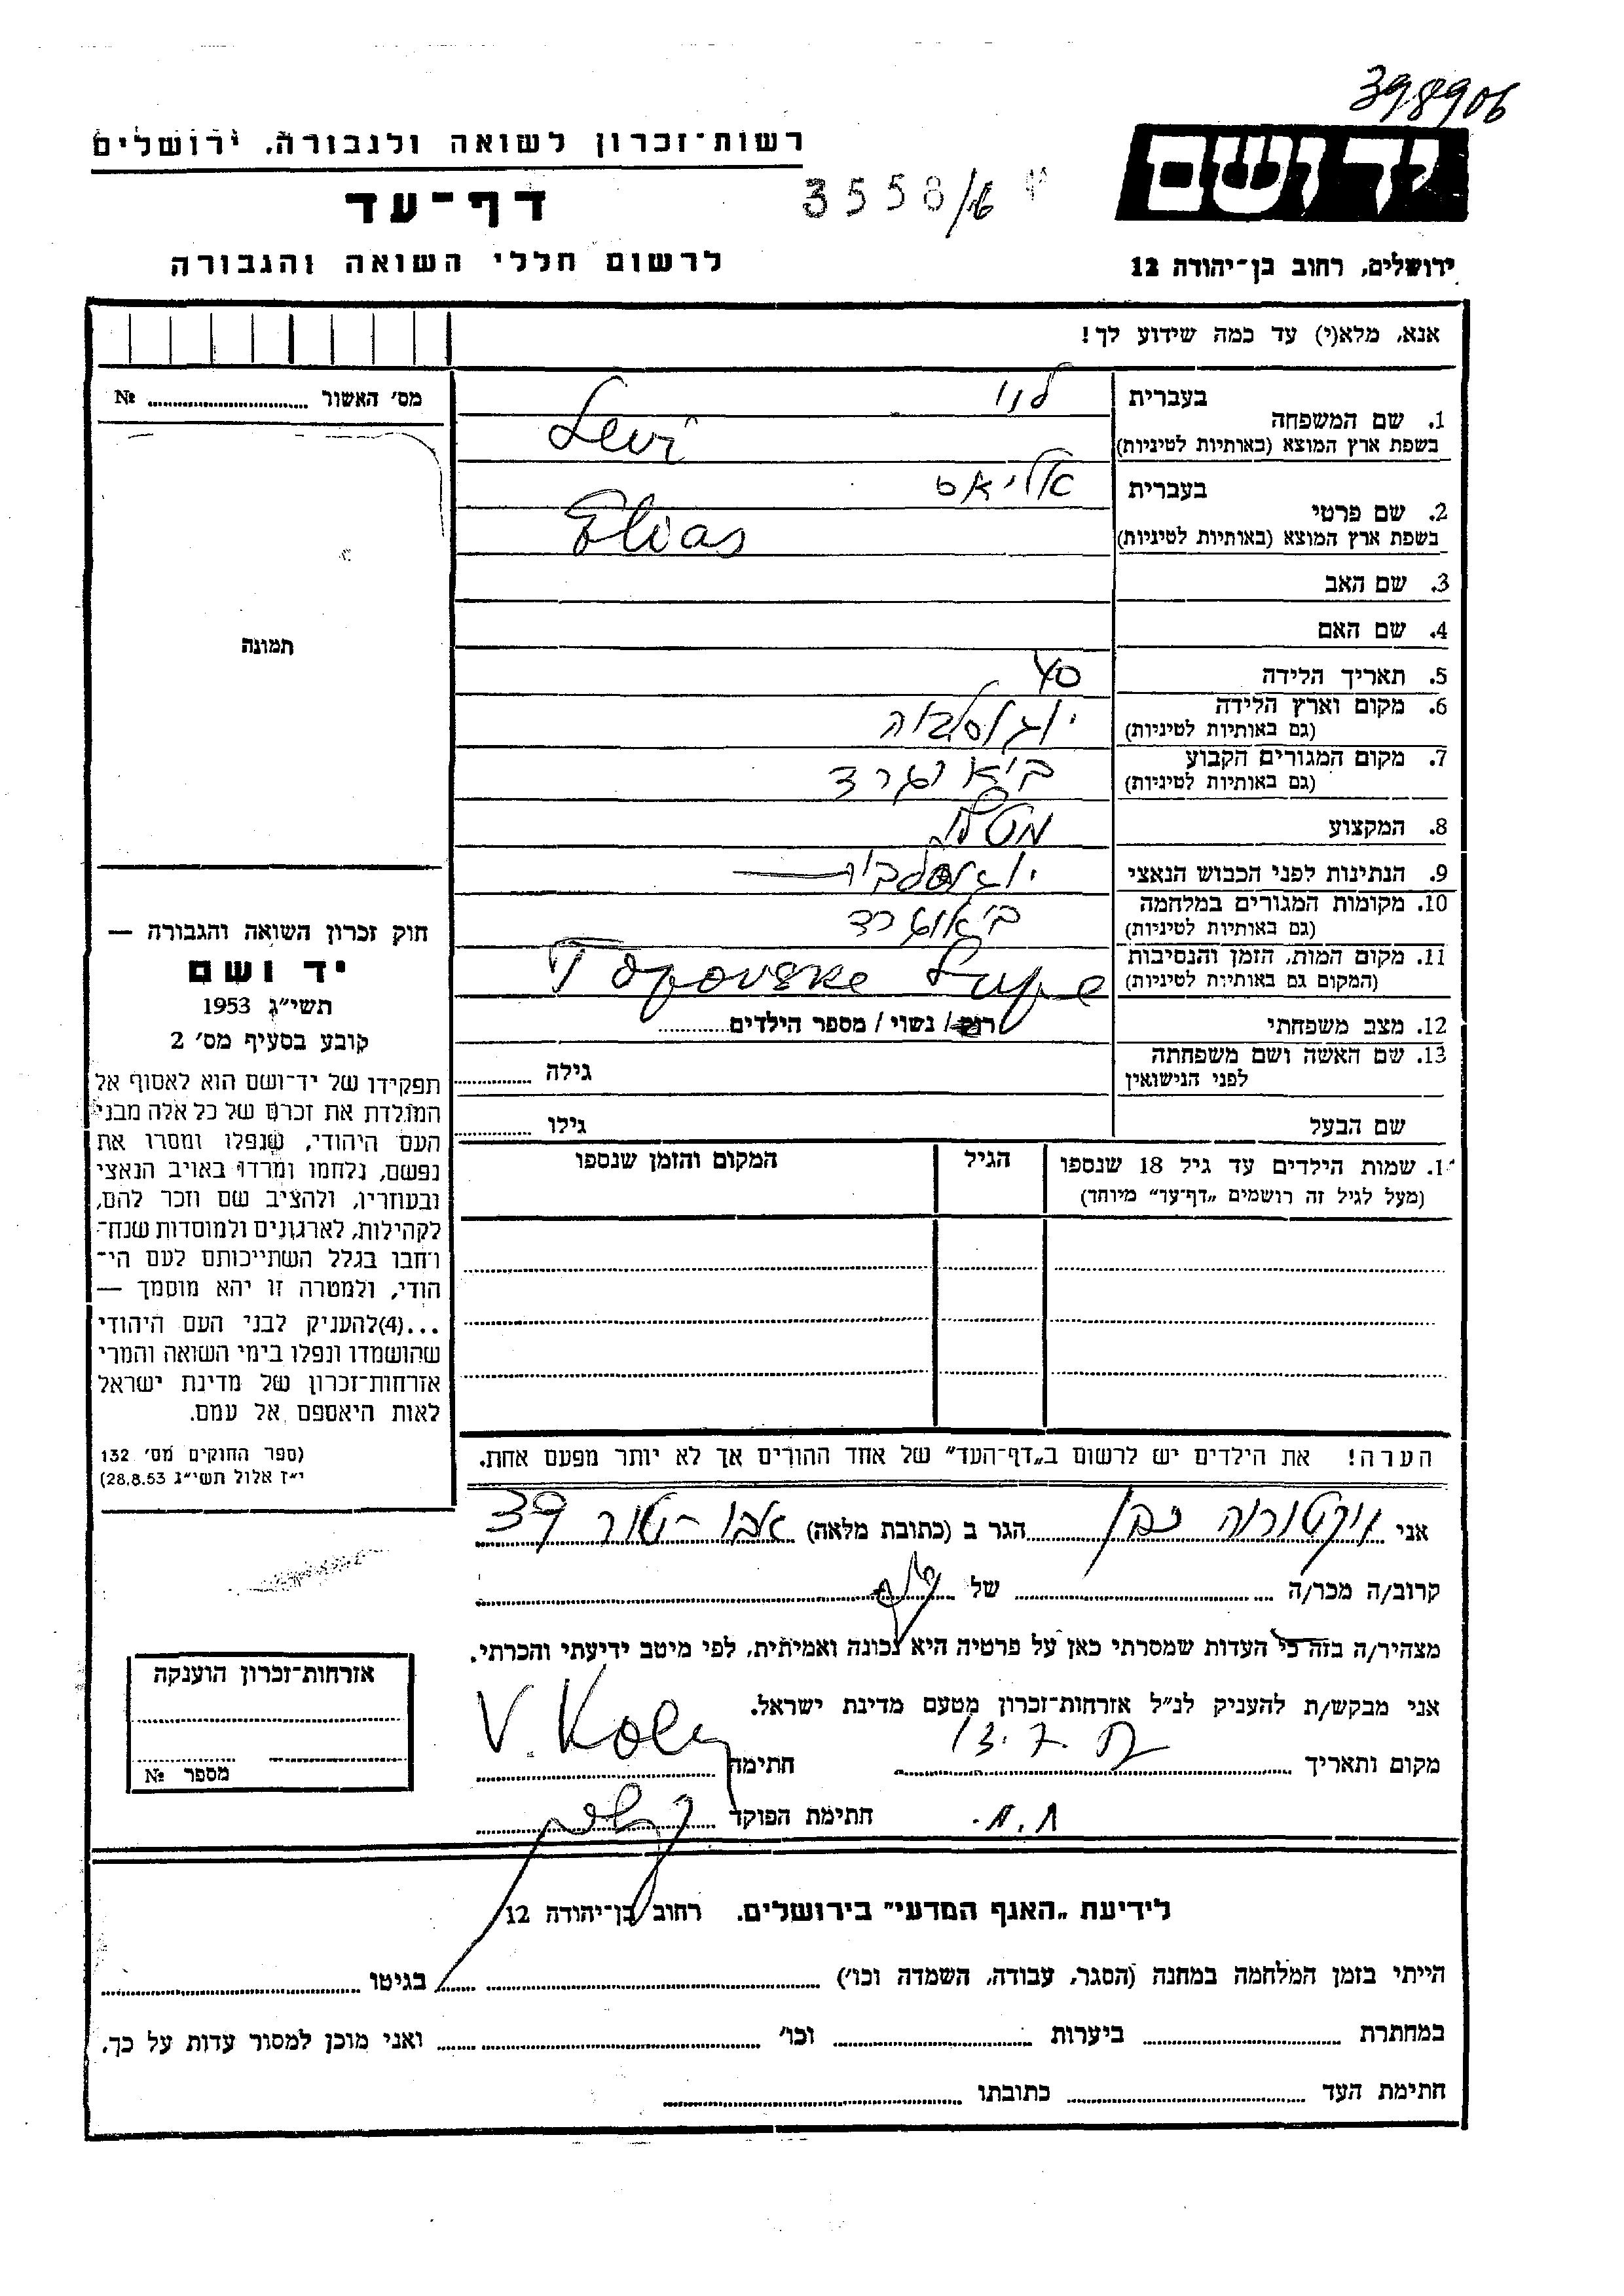 398906
יד ושם
רשות־זכרון לשואה ולגבורה, ירושלים
3558/16
דף־עד
ירושלים, רחוב בן־יהודה 12
לרשום חללי השואה והגבורה
אנא, מלא(י) עד כמה שידוע לך!
מס׳ האשור № 
1. שם המשפחה
בעברית לוי
בשפת ארץ המוצא (באותיות לטיניות) Levi
2. שם פרטי
בעברית אליאס
בשפת ארץ המוצא (באותיות לטיניות) Elias
3. שם האב
4. שם האם
תמונה
5. תאריך הלידה 40
6. מקום וארץ הלידה
(גם באותיות לטיניות) יוגוסלביה
7. מקום המגורים הקבוע
(גם באותיות לטיניות)
8. המקצוע
9. הנתינות לפני הכבוש הנאצי
10. מקומות המגורים במלחמה
(גם באותיות לטיניות)
11. מקום המות, הזמן והנסיבות
(המקום גם באותיות לטיניות) Topovske Šupe
12. מצב משפחתי רוק / נשוי / מספר הילדים
13. שם האשה ושם משפחתה
לפני הנישואין גילה
שם הבעל גילו
1. שמות הילדים עד גיל 18 שנספו
(מעל לגיל זה רושמים „דף־עד" מיוחד)
הגיל
המקום והזמן שנספו
חוק זכרון השואה והגבורה —
יד ושם
תשי״ג 1953
קובע בסעיף מס׳ 2
תפקידו של יד־ושם הוא לאסוף אל
המולדת את זכרם של כל אלה מבני
העם היהודי, שנפלו ומסרו את
נפשם, נלחמו ומרדו באויב הנאצי
ובעוזריו, ולהציב שם וזכר להם,
לקהילות, לארגונים ולמוסדות שנח־
רחבו בגלל השתייכותם לעם הי־
הודי, ולמטרה זו יהא מוסמך —
...(4)להעניק לבני העם היהודי
שהושמדו ונפלו בימי השואה והמרי
אזרחות־זכרון של מדינת ישראל
לאות היאספם אל עמם.
(ספר החוקים מס׳ 132
י״ז אלול תשי״ג 28.8.53)
הערה! את הילדים יש לרשום ב„דף־העד" של אחד ההורים אך לא יותר מפעם אחת.
אני ויקטוריה הגר ב (כתובת מלאה) 39
קרוב/ה מכר/ה של
מצהיר/ה בזה כי העדות שמסרתי כאן על פרטיה היא נכונה ואמיתית, לפי מיטב ידיעתי והכרתי.
אני מבקש/ת להעניק לנ״ל אזרחות־זכרון מטעם מדינת ישראל.
מקום ותאריך 13.7. חתימה V. Koen
חתימת הפוקד
אזרחות־זכרון הוענקה
מספר №
לידיעת „האגף המדעי" בירושלים, רחוב בן־יהודה 12
הייתי בזמן המלחמה במחנה (הסגר, עבודה, השמדה וכו׳) בגיטו
במחתרת ביערות וכו׳ ואני מוכן למסור עדות על כך.
חתימת העד כתובתו